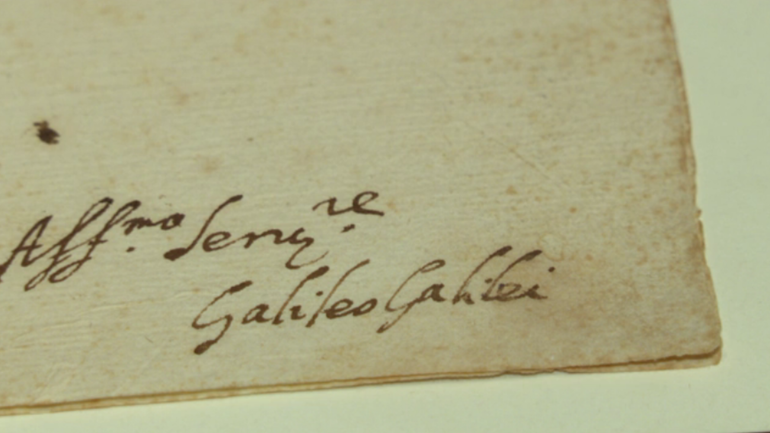 Aff.mo Seru.re
Galileo Galilei